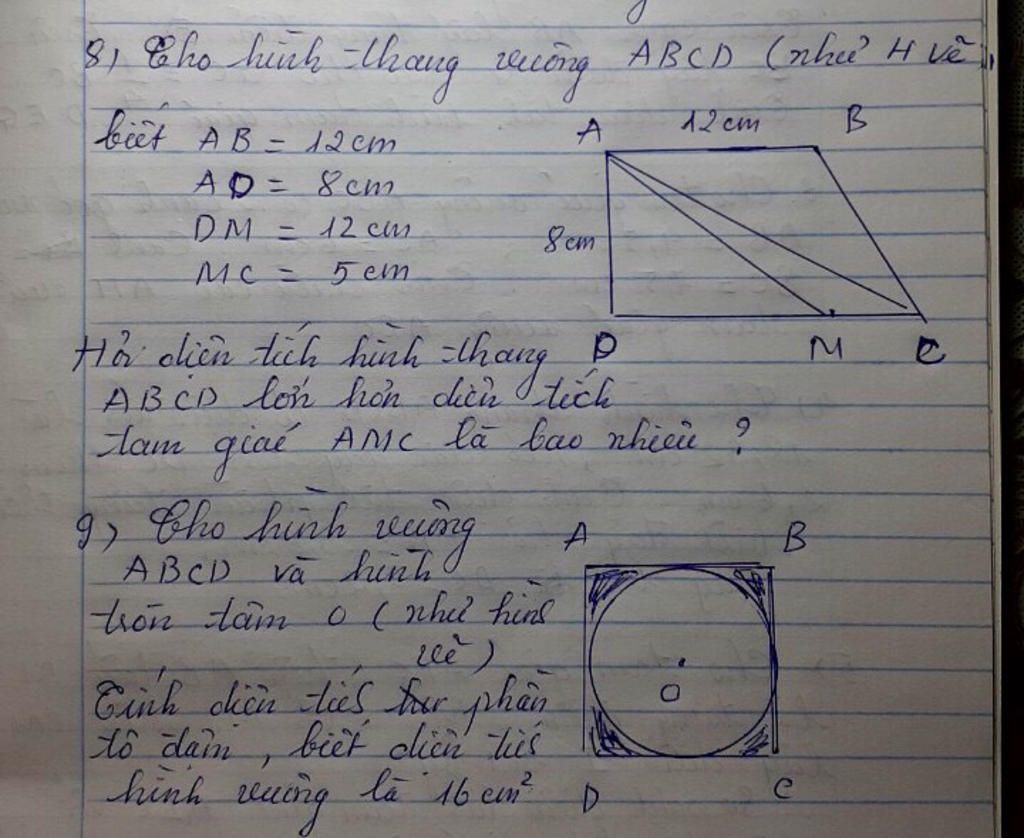 8) Cho hình thang vuông ABCD (như H vẽ),
biết AB = 12cm
AD = 8cm
DM = 12cm
MC = 5cm
A 12cm B
8cm
D M C
Hỏi diện tích hình thang
ABCD lớn hơn diện tích
tam giác AMC là bao nhiêu ?
9) Cho hình vuông
ABCD và hình
tròn tâm O (như hình
vẽ)
Tính diện tích phần
tô đậm, biết diện tích
hình vuông là 16cm²
A B
O
D C